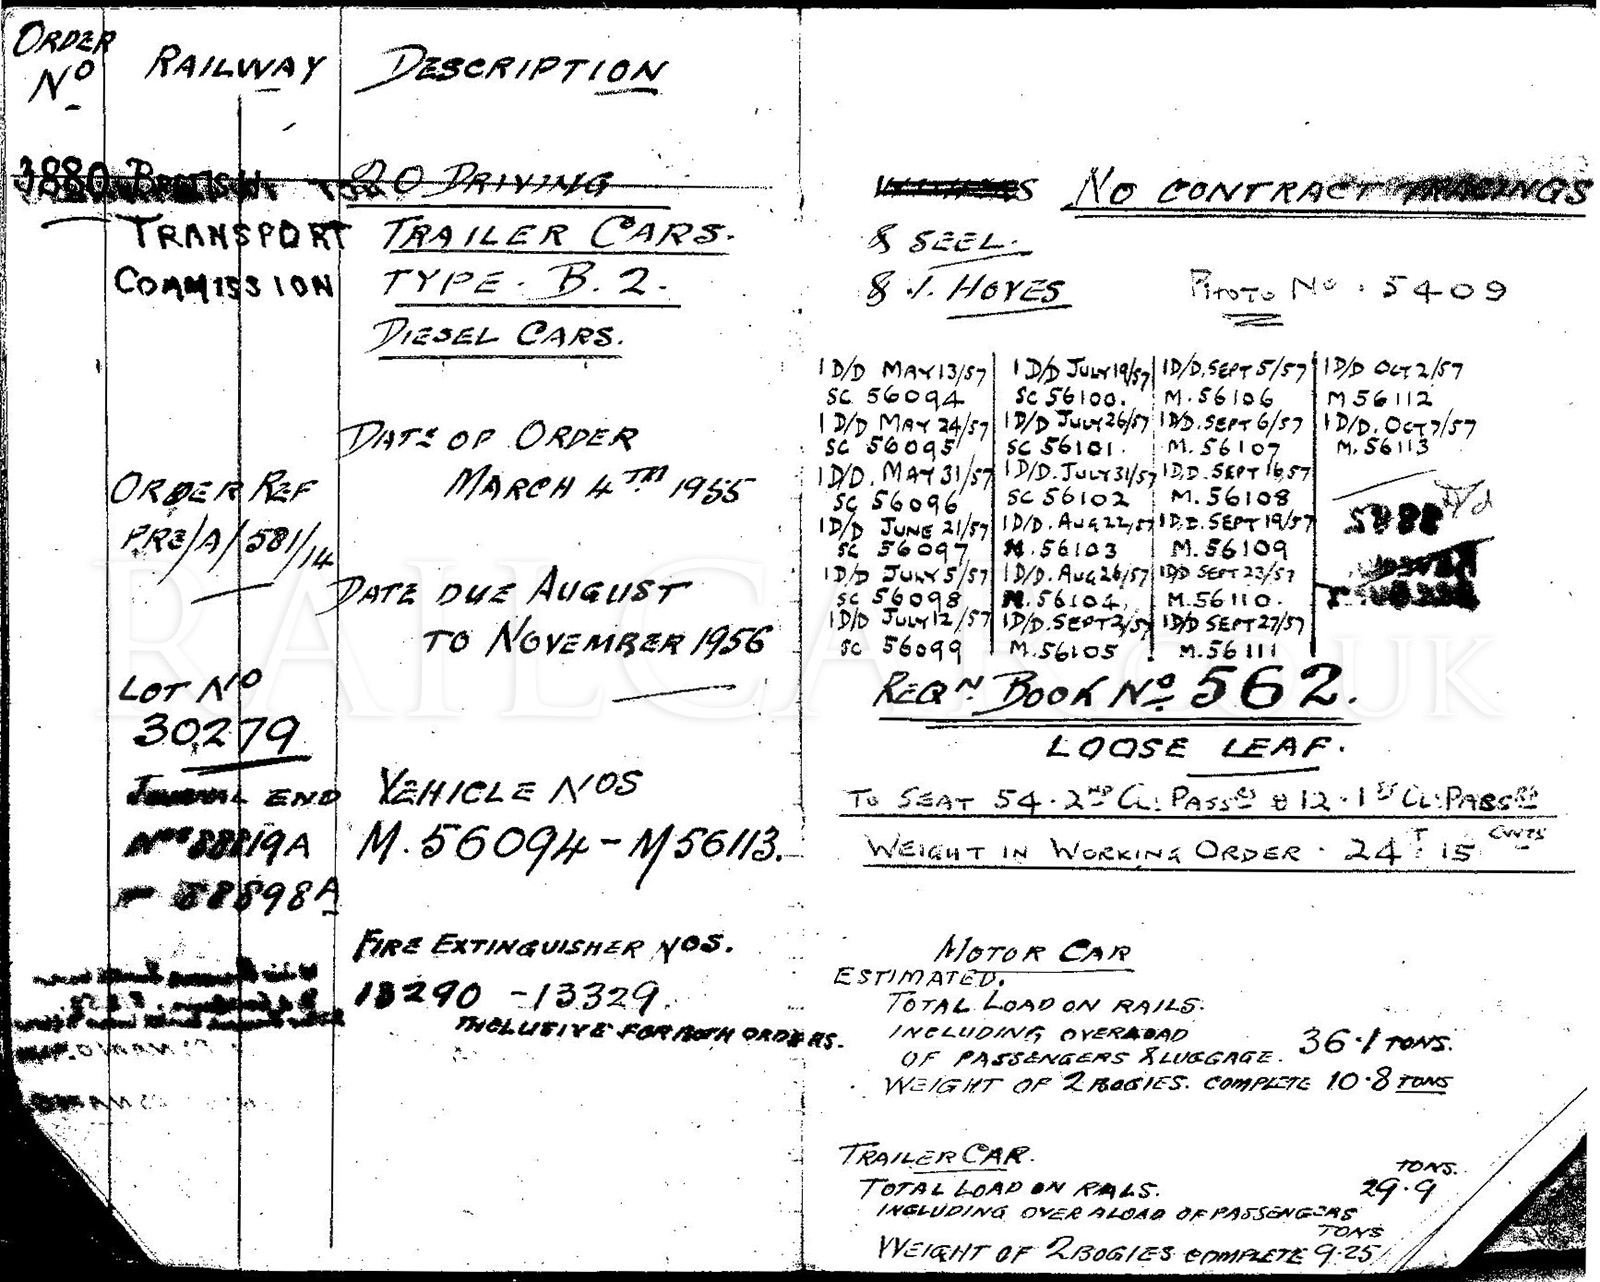 ORDER
No
RAILWAY
DESCRIPTION
3880 BRITISH
TRANSPORT
COMMISSION
20 DRIVING
TRAILER CARS.
TYPE. B.2.
DIESEL CARS.
DATE OF ORDER
MARCH 4TH 1955
ORDER REF
PRE/A/581/14
DATE DUE AUGUST
TO NOVEMBER 1956
LOT No
30279
JOURNAL END
VEHICLE NOS
M.56094 - M56113.
FIRE EXTINGUISHER NOS.
13290 - 13329.
INCLUSIVE FOR BOTH ORDERS.
NO CONTRACT TRACINGS
& SEEL.
& J. HOYES
PHOTO No. 5409
1 D/D MAY 13/57
SC 56094
1 D/D MAY 24/57
SC 56095
1 D/D. MAY 31/57
SC 56096
1 D/D JUNE 21/57
SC 56097
1 D/D JULY 5/57
SC 56098
1 D/D JULY 12/57
SC 56099
1 D/D JULY 19/57
SC 56100.
1 D/D JULY 26/57
SC 56101.
1 D/D. JULY 31/57
SC 56102
1 D/D. AUG 22/57
M.56103
1 D/D. AUG 26/57
M.56104.
1 D/D. SEPT 2/57
M.56105
1 D/D. SEPT 5/57
M.56106
1 D/D. SEPT 6/57
M.56107
1 D.D. SEPT 16/57
M.56108
1 D.D. SEPT 19/57
M.56109
1 D/D SEPT 23/57
M.56110.
1 D/D SEPT 27/57
M.56111
1 D/D OCT 2/57
M 56112
1 D/D. OCT 7/57
M.56113
REQN. BOOK No 562.
LOOSE LEAF.
TO SEAT 54. 2ND CL: PASSRS & 12. 1ST CL: PASSRS
WEIGHT IN WORKING ORDER. 24T 15 CWTS
MOTOR CAR
ESTIMATED.
TOTAL LOAD ON RAILS.
INCLUDING OVERLOAD
OF PASSENGERS & LUGGAGE. 36.1 TONS.
WEIGHT OF 2 BOGIES. COMPLETE 10.8 TONS
TRAILER CAR.
TONS.
TOTAL LOAD ON RAILS. 29.9
INCLUDING OVERALOAD OF PASSENGERS
TONS
WEIGHT OF 2 BOGIES COMPLETE 9.25
RAILCAR.CO.UK